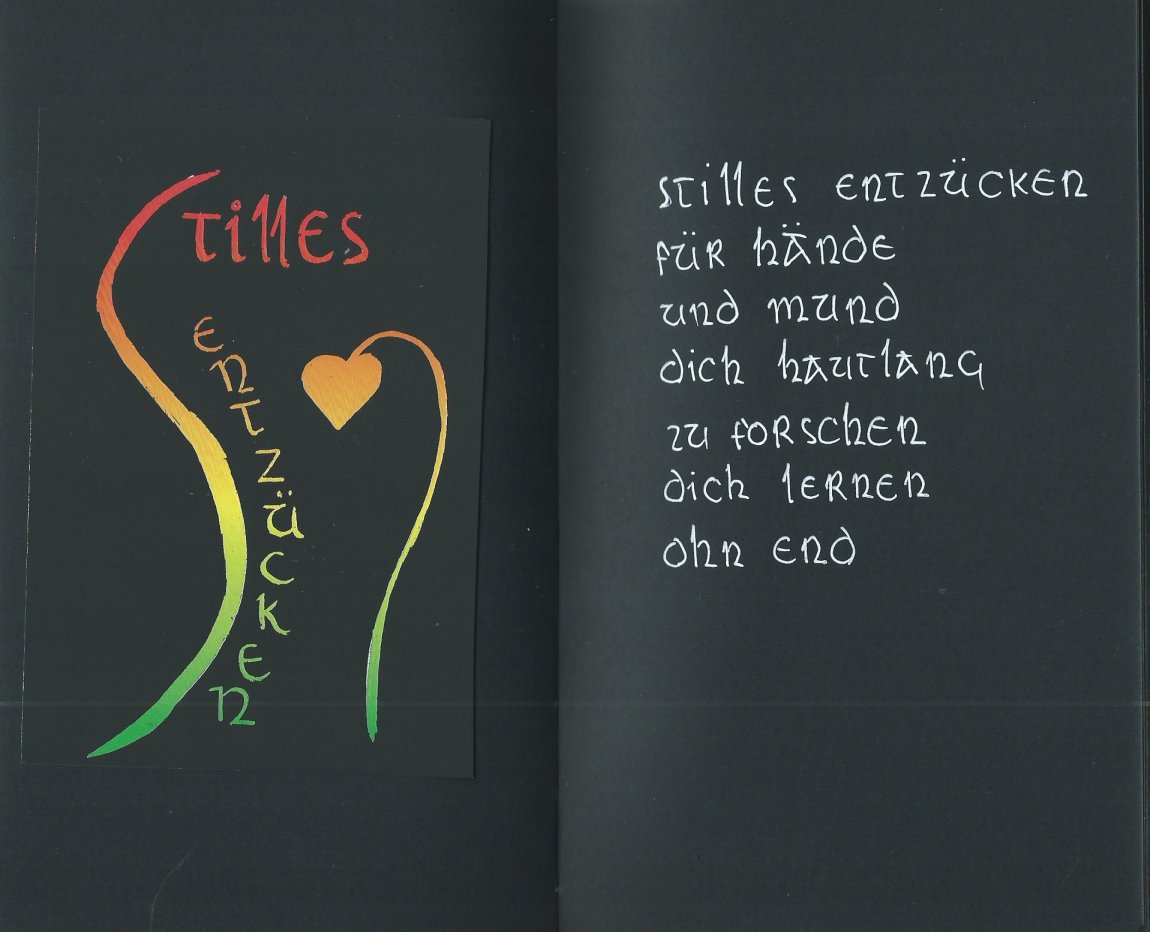 Stilles
entzücken
stilles entzücken
für hände
und mund
dich hautlang
zu forschen
dich lernen
ohn end